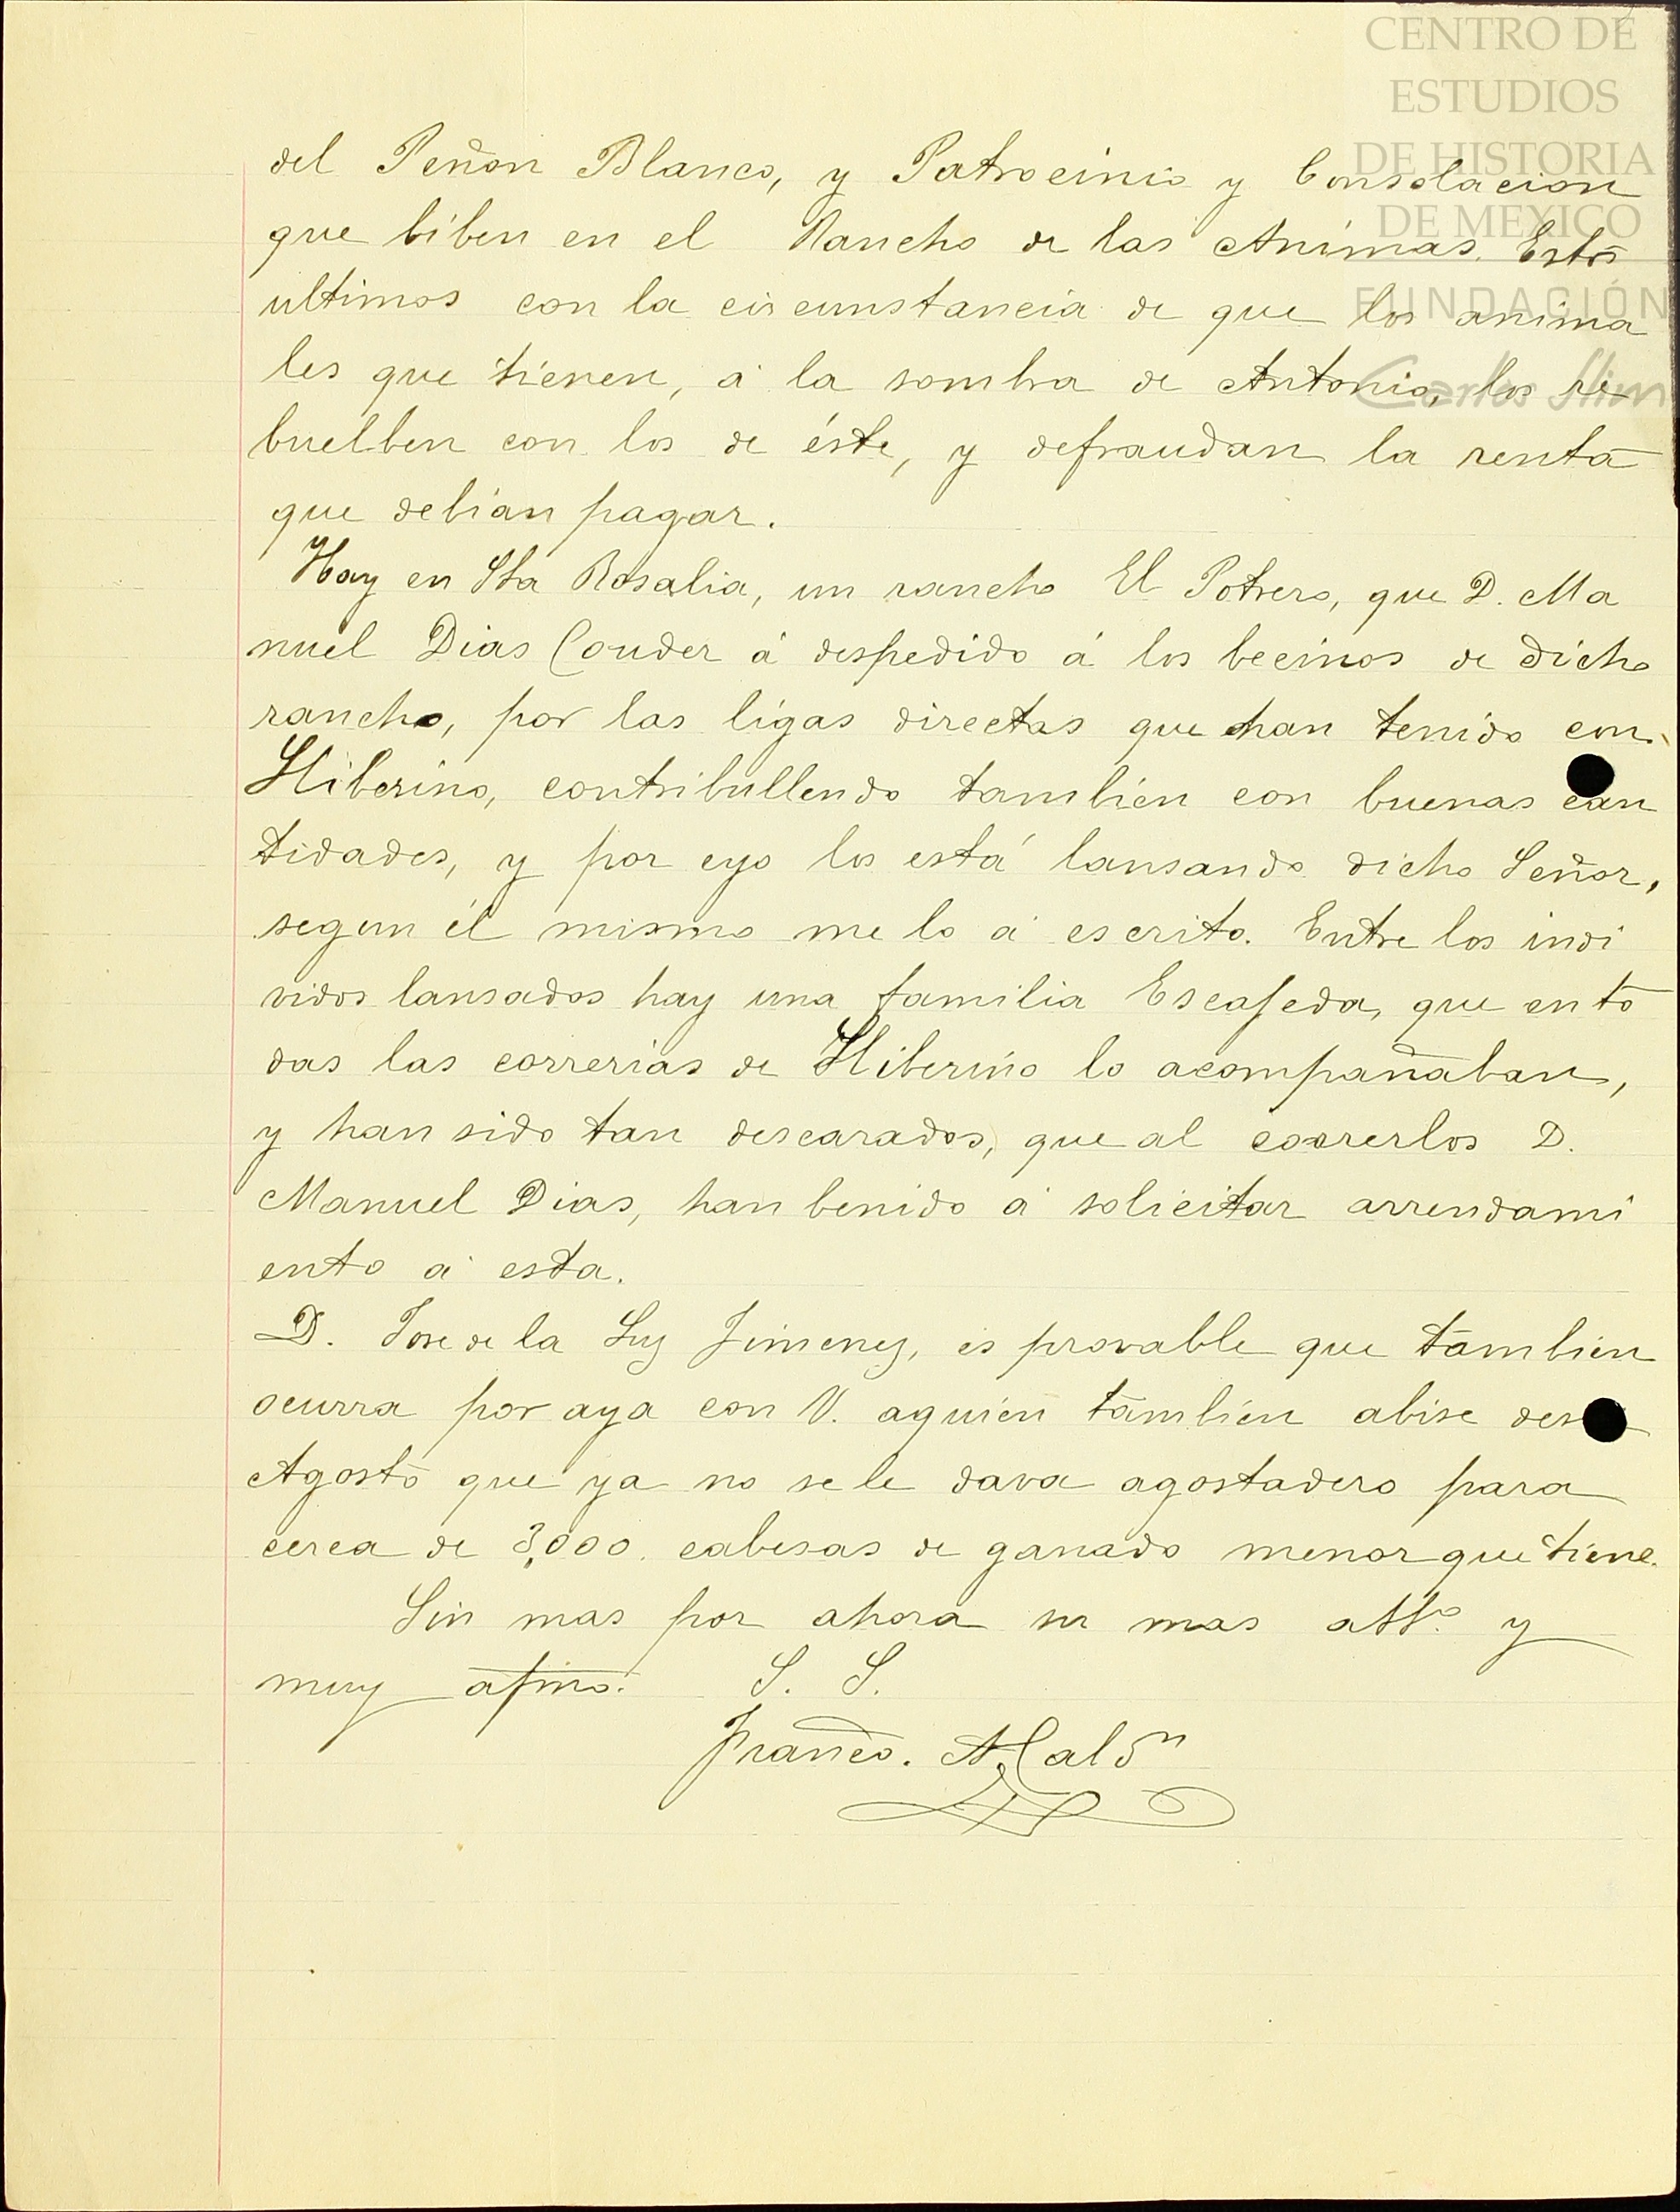 CENTRO DE
ESTUDIOS
DE HISTORIA
DE MEXICO
FUNDACIÓN
Carlos Slim
del Peñon Blanco, y Patrocinio y Consolacion
que biben en el Rancho de las Animas. Estos
ultimos con la circunstancia de que los anima
les que tienen, á la sombra de Antonio, los re
buelben con los de éste, y defraudan la renta
que debian pagar.
Hay en Sta Rosalia, un rancho El Potrero, que D. Ma
nuel Dias Couder á despedido á los becinos de dicho
rancho, por las ligas directas que han tenido con
Hiberino, contribullendo tambien con buenas can
tidades, y por eyo los está lansando dicho Señor,
segun él mismo me lo á escrito. Entre los indi
vidos lansados hay una familia Escageda, que en to
das las correrias de Hiberino lo acompañaban,
y han sido tan descarados, que al correrlos D.
Manuel Dias, han benido á solicitar arrendami
ento á esta.
D. Jose de la Luz Jimenez, es provable que tambien
ocurra por aya con V. aquien tambien abise
Agosto que ya no se le dava agostadero para
cerca de 3,000 cabesas de ganado menor que tiene.
Sin mas por ahora su mas atto. y
muy afmo. S. S.
Franco. A. Caldn